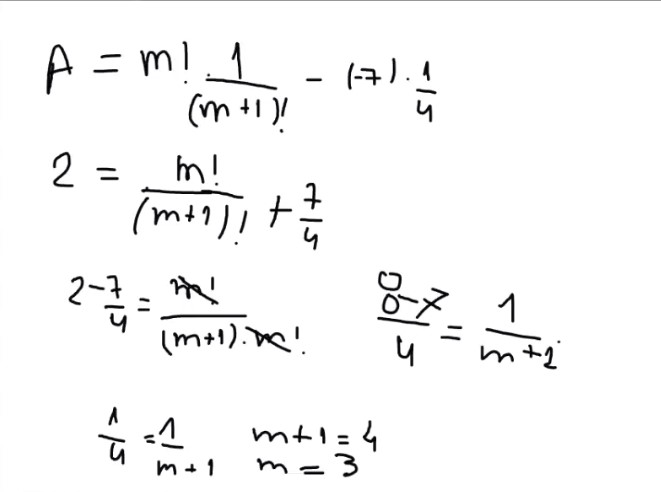 A = m! · 1/(m+1)! - (-7) · 1/4
2 = m!/(m+1)! + 7/4
2 - 7/4 = m!/((m+1) · m!) 8-7/4 = 1/m+1
1/4 = 1/m+1 m+1 = 4
m = 3